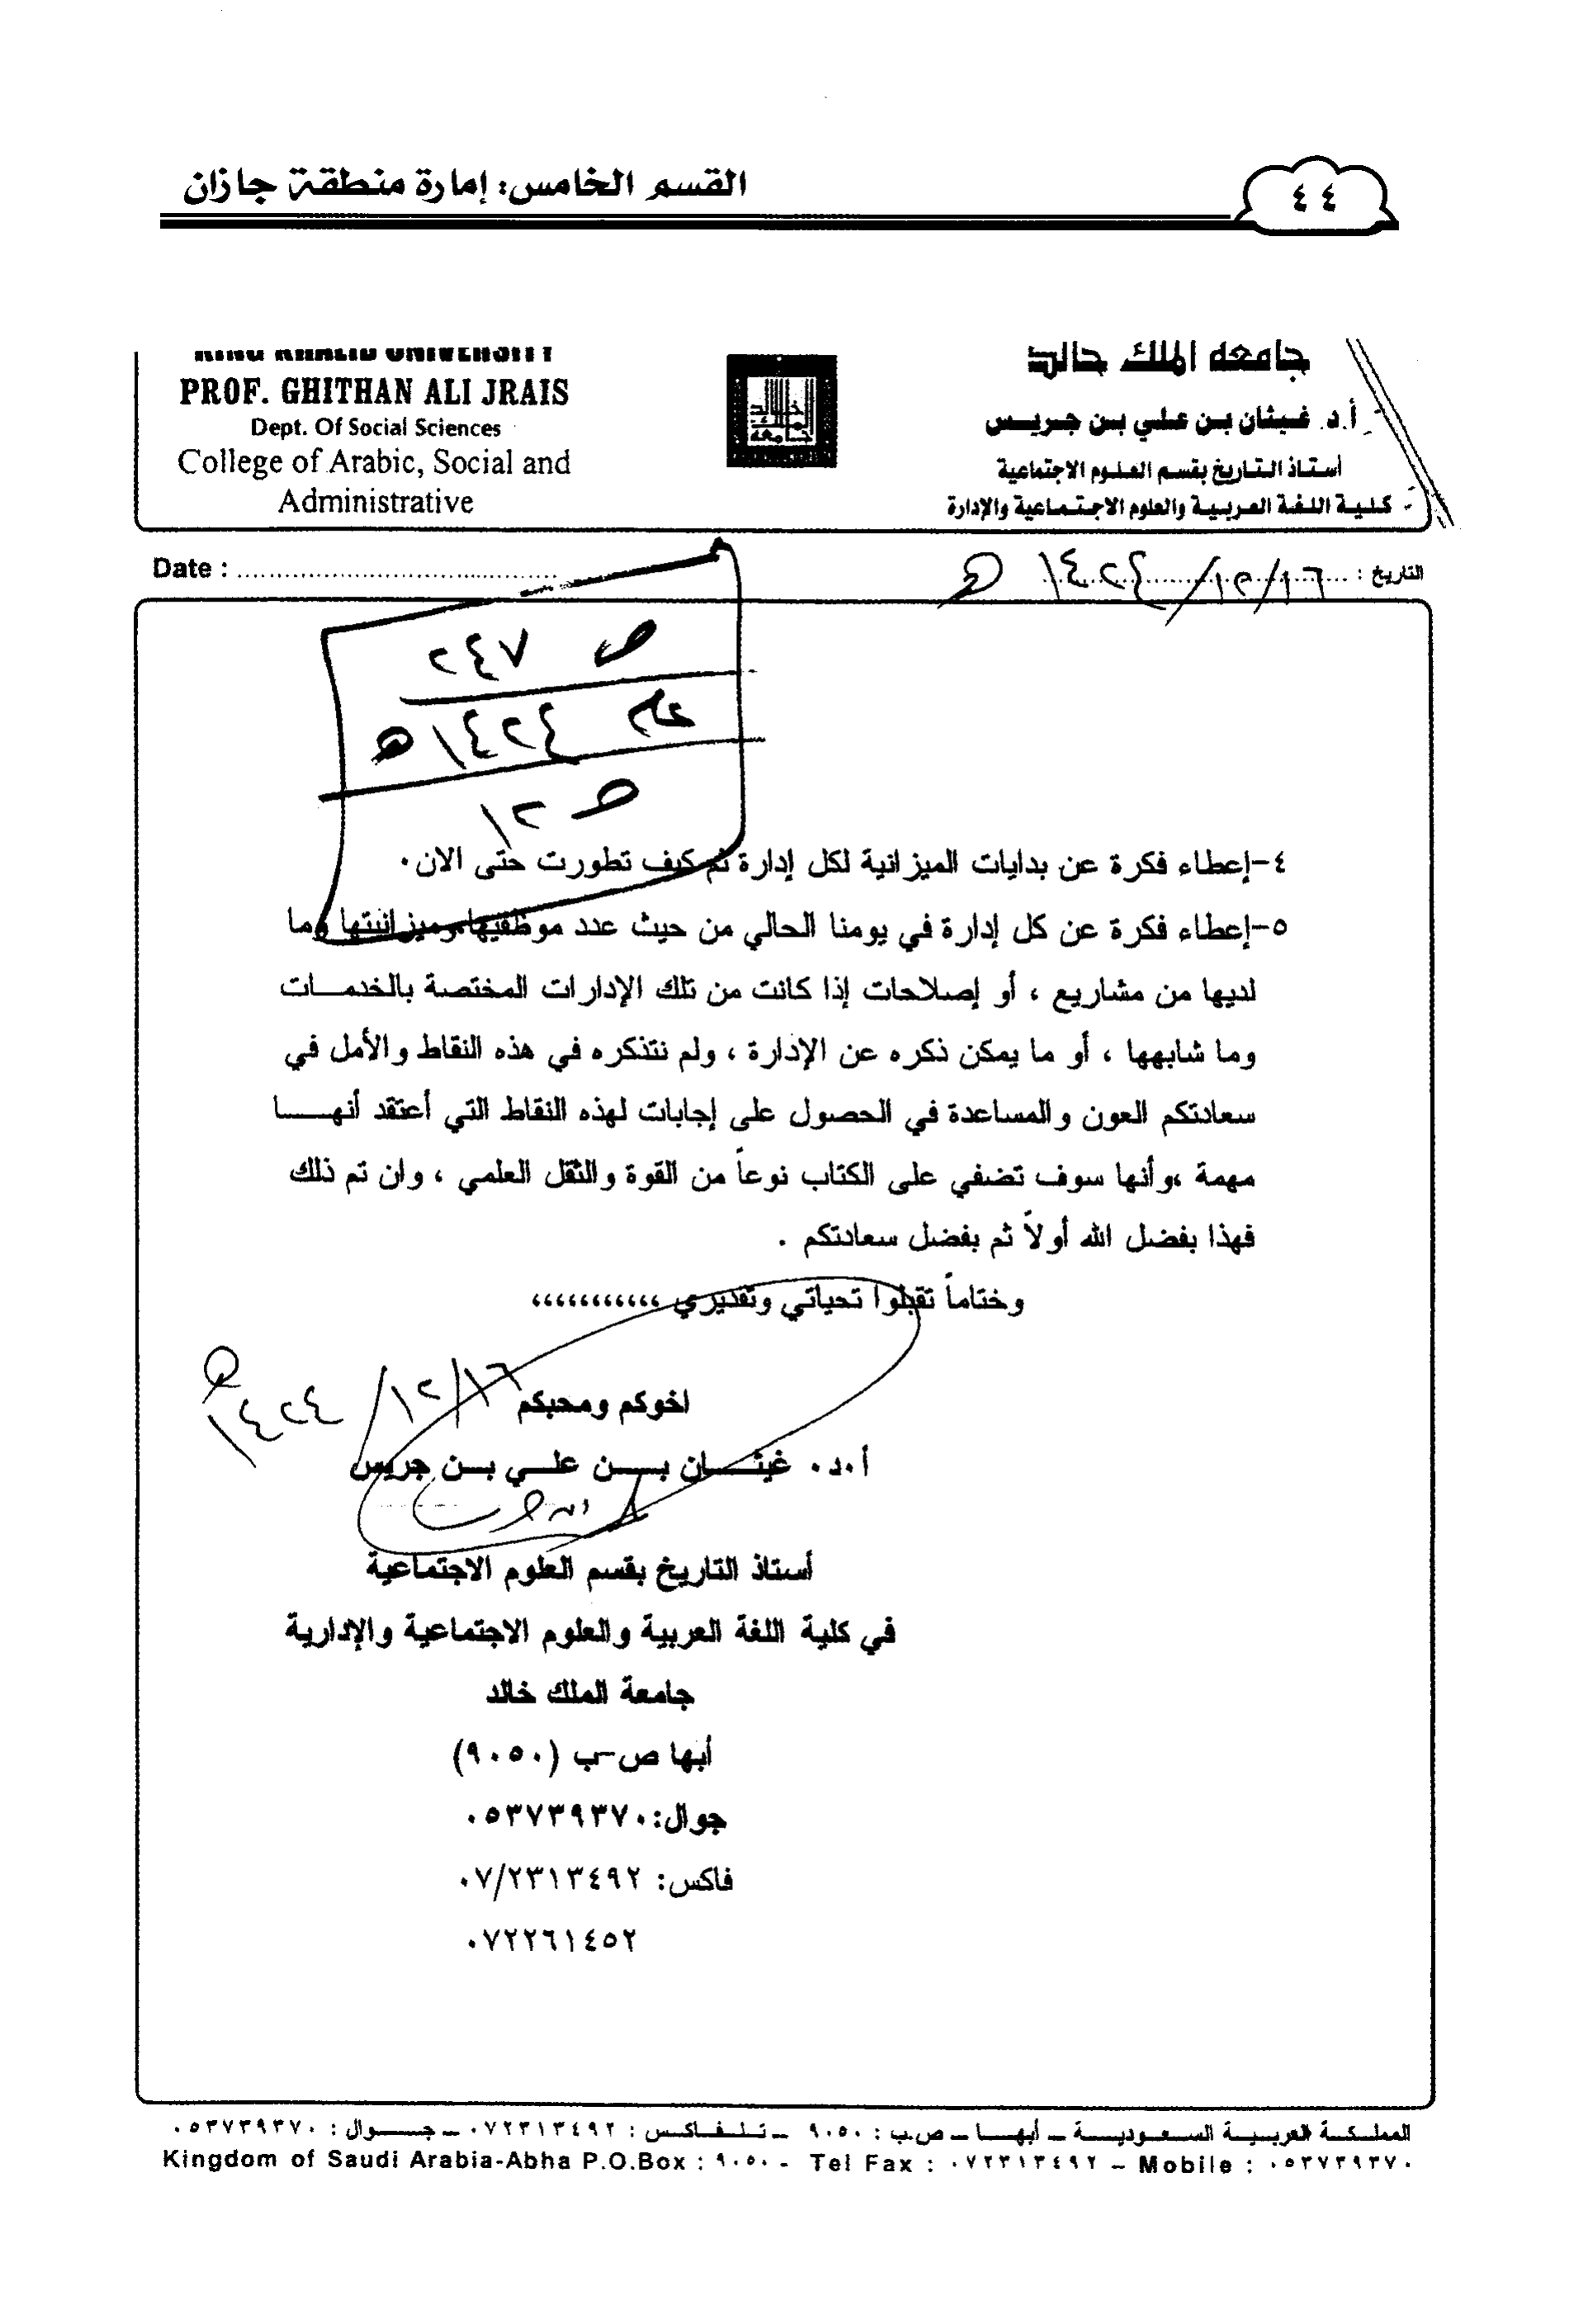 القسم الخامس: إمارة منطقة جازان
٤٤
KING KHALID UNIVERSITY
PROF. GHITHAN ALI JRAIS
Dept. Of Social Sciences
College of Arabic, Social and
Administrative
جامعة الملك خالد
أ.د. غيثان بن علي بن جريس
أستاذ التاريخ بقسم العلوم الاجتماعية
كلية اللغة العربية والعلوم الاجتماعية والإدارة
Date : ........................................
التاريخ : ١٦/١٢/١٤٢٤هـ
ص ٢٤٧
عام ١٤٢٤هـ
ص ١٢
٤-إعطاء فكرة عن بدايات الميزانية لكل إدارة ثم كيف تطورت حتى الان.
٥-إعطاء فكرة عن كل إدارة في يومنا الحالي من حيث عدد موظفيها وميزانيتها وما
لديها من مشاريع ، أو إصلاحات إذا كانت من تلك الإدارات المختصة بالخدمات
وما شابهها ، أو ما يمكن ذكره عن الإدارة ، ولم نتذكره في هذه النقاط والأمل في
سعادتكم العون والمساعدة في الحصول على إجابات لهذه النقاط التي أعتقد أنهـــا
مهمة ،وأنها سوف تضفي على الكتاب نوعاً من القوة والثقل العلمي ، وان تم ذلك
فهذا بفضل الله أولاً ثم بفضل سعادتكم .
وختاماً تقبلوا تحياتي وتقديري ،،،،،،،،،،،
اخوكم ومحبكم
١٦/١٢/١٤٢٤هـ
أ.د. غيثـــان بـــن علـــي بـــن جريس
أستاذ التاريخ بقسم العلوم الاجتماعية
في كلية اللغة العربية والعلوم الاجتماعية والإدارية
جامعة الملك خالد
أبها ص-ب (٩٠٥٠)
جوال:٠٥٣٧٣٩٣٧٠
فاكس: ٠٧/٢٣١٣٤٩٢
٠٧٢٢٦١٤٥٢
المملكة العربية السعودية – أبهـا – ص.ب : ٩٠٥٠ – تلـفـاكـس : ٠٧٢٣١٣٤٩٢ – جـــوال : ٠٥٣٧٣٩٣٧٠
Kingdom of Saudi Arabia-Abha P.O.Box : ٩٠٥٠ - Tel Fax : ٠٧٢٣١٣٤٩٢ – Mobile : ٠٥٣٧٣٩٣٧٠